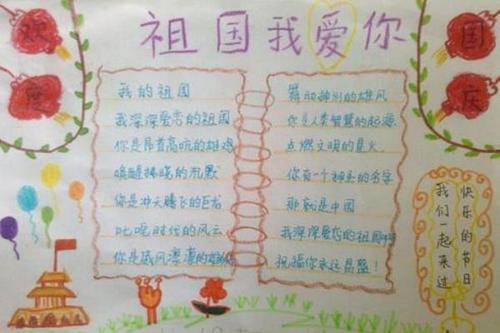 欢度
祖国我爱你
国庆
我的祖国
我深深爱恋的祖国
你是昂首高吭的雄鸡
唤醒拂晓的沉默
你是冲天腾飞的巨龙
叱咤时代的风云
你是威风凛凛的雄狮
舞动神州的雄风
你是人类智慧的起源
点燃文明的星火
你有一个神圣的名字
那就是中国
我深深爱恋的祖国
祝福你永远昌盛！
快乐的节日
我们一起来过